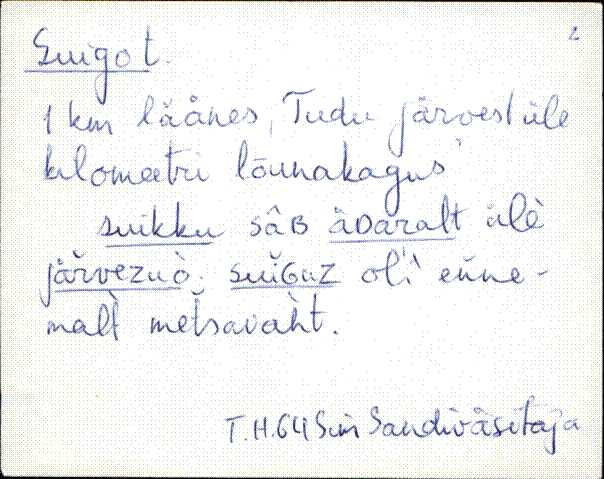 2
Suigot.
1 km läänes, Tudu järvest üle
kilomeetri lõunakagus
suikku sâB äDaralt ülè
järvezuò. suiGuz ol'i enne-
malt metsavaht.
T.H. 64 Sim Sandiväsitaja